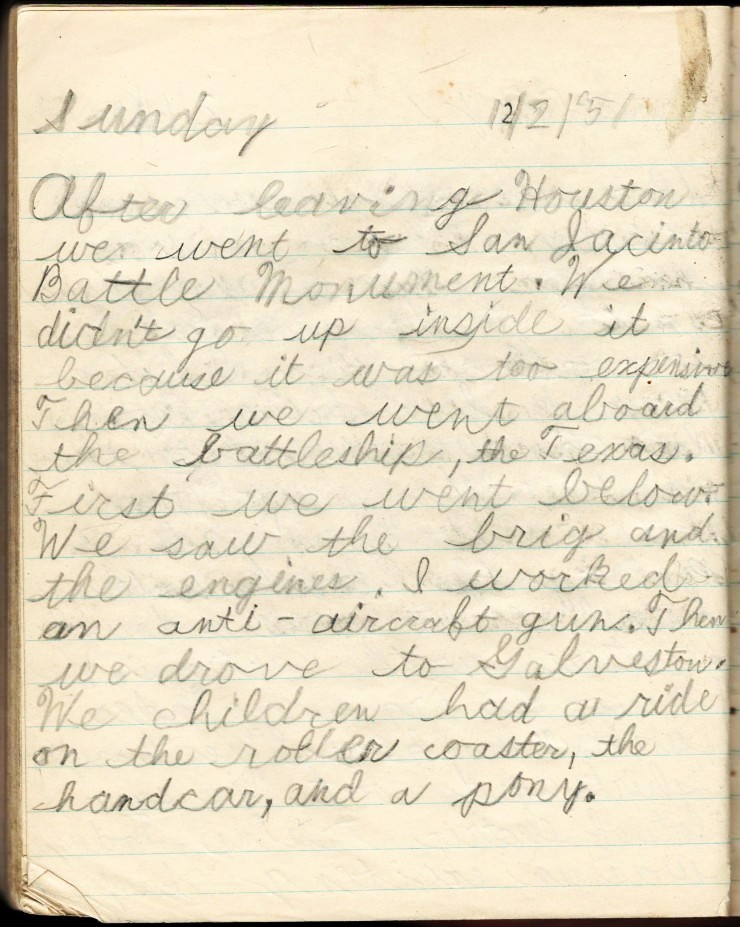 Sunday 12/2/51
After leaving Houston
we went to San Jacinto
Battle Monument. We
didn't go up inside it
because it was too expensive
Then we went aboard
the battleship, the Texas.
First we went below.
We saw the brig and
the engines. I worked
an anti-aircraft gun. Then
we drove to Galveston.
We children had a ride
on the roller coaster, the
handcar, and a pony.